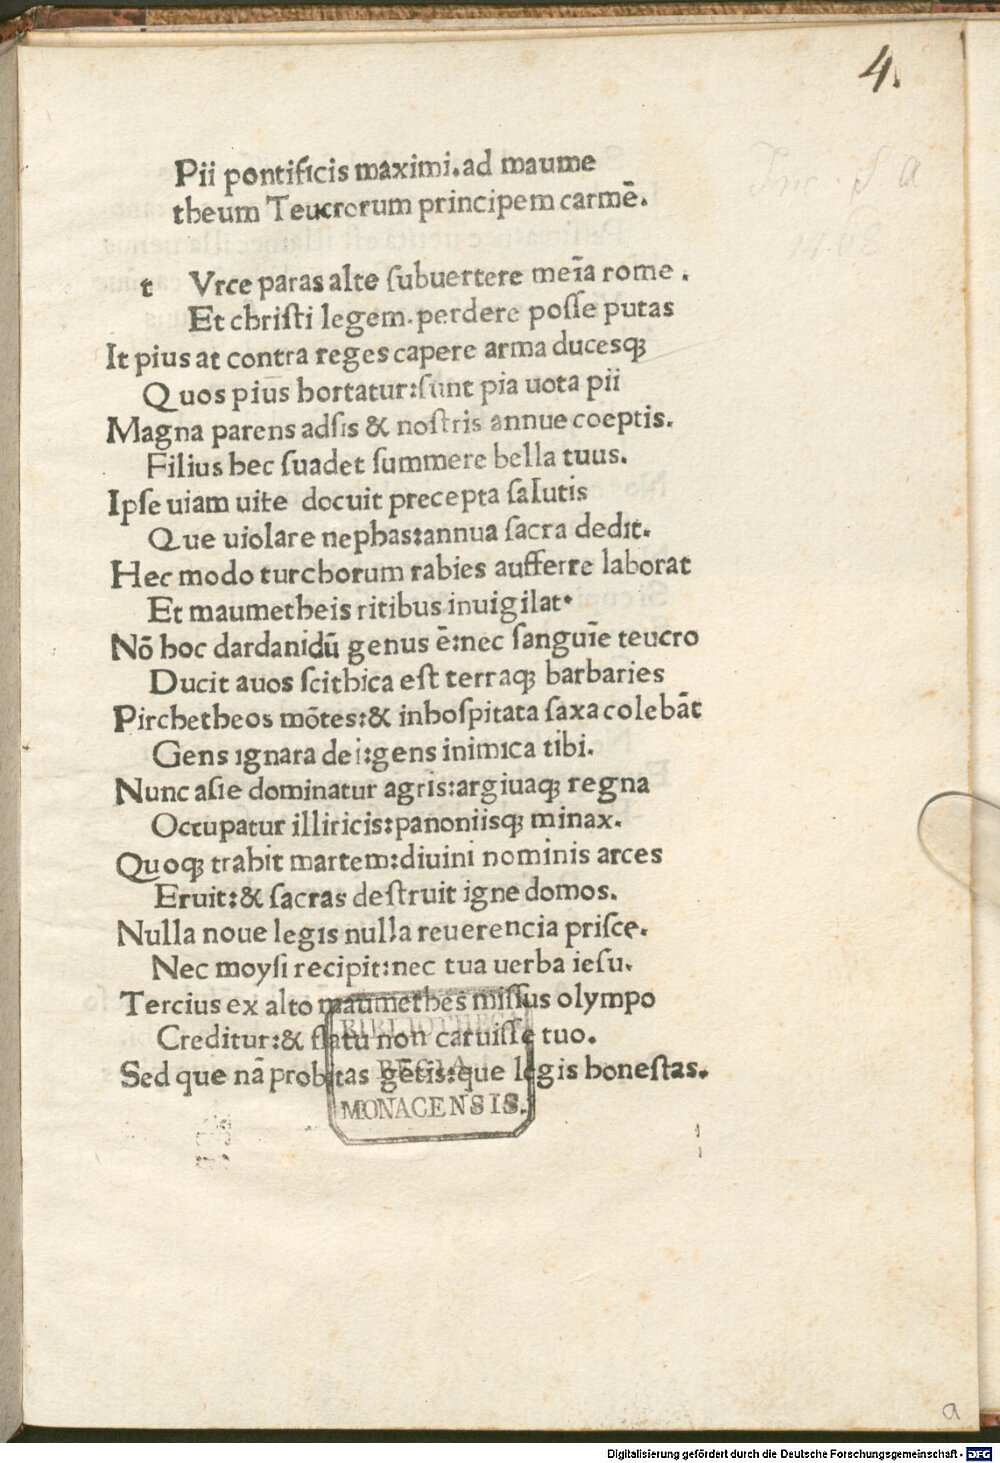 4.
Pii pontificis maximi.ad maume
theum Teucrorum principem carmē.
t Vrce paras alte ſubuertere meīa rome .
Et chriſti legem.perdere poſſe putas
It pius at contra reges capere arma duceſqꝫ
Quos pius hortatur:ſunt pia uota pii
Magna parens adſis & noſtris annue coeptis.
Filius hec ſuadet ſummere bella tuus.
Ipſe uiam uite docuit precepta ſalutis
Que uiolare nephas:annua ſacra dedit.
Hec modo turchorum rabies aufferre laborat
Et maumetheis ritibus inuigilat.
Nō hoc dardanidū genus ē:nec ſanguīe teucro
Ducit auos ſcithica eſt terraqꝫ barbaries
Pirchetheos mōtes:& inhoſpitata ſaxa colebāt
Gens ignara dei:gens inimica tibi.
Nunc aſie dominatur agris:argiuaqꝫ regna
Occupatur illiricis:panoniiſqꝫ minax.
Quoqꝫ trahit martem:diuini nominis arces
Eruit:& ſacras deſtruit igne domos.
Nulla noue legis nulla reuerencia priſce.
Nec moyſi recipit:nec tua uerba ieſu.
Tercius ex alto maumethes miſſus olympo
Creditur:& flatu non caruiſſe tuo.
Sed que nā probitas gētis:que legis honeſtas.
BIBLIOTHECA
REGIA
MONACENSIS.
a
Digitalisierung gefördert durch die Deutsche Forschungsgemeinschaft - DFG